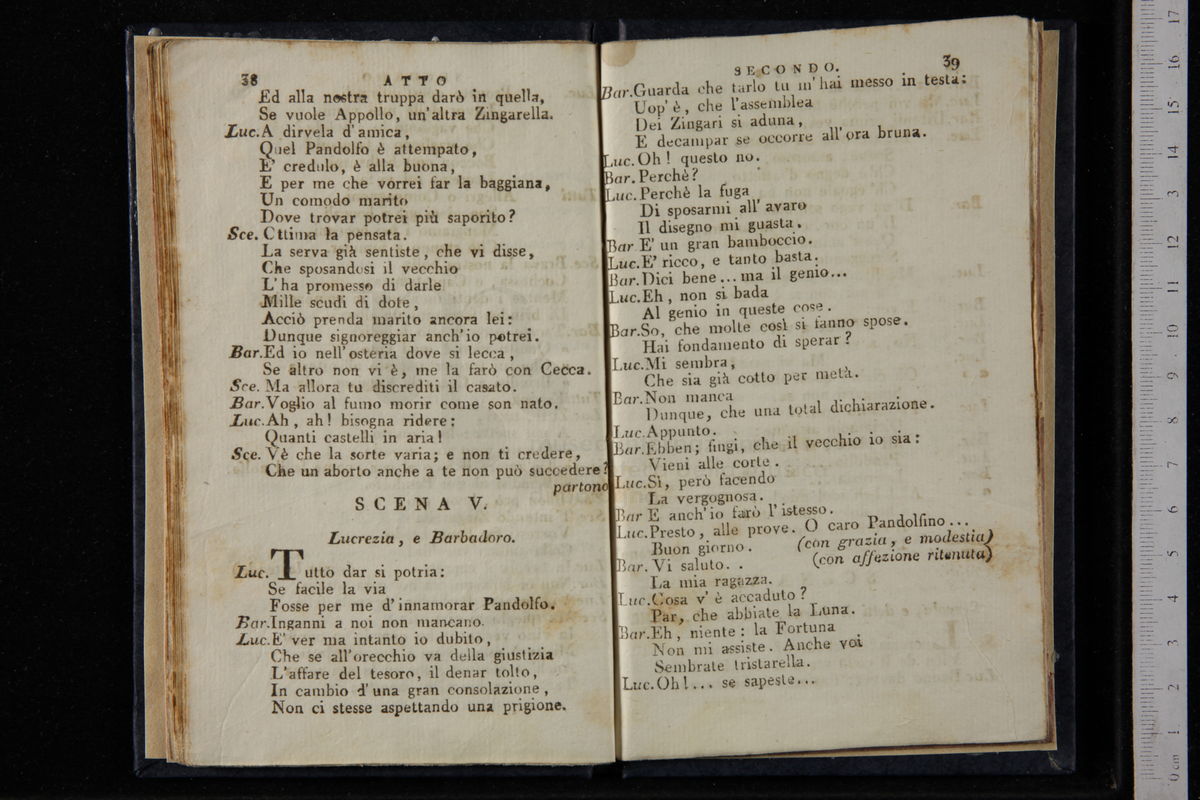 38 ATTO
Ed alla nostra truppa darò in quella,
Se vuole Appollo, un'altra Zingarella.
Luc. A dirvela d'amica,
Quel Pandolfo è attempato,
E' credulo, è alla buona,
E per me che vorrei far la baggiana,
Un comodo marito
Dove trovar potrei più saporito?
Sce. Ottima la pensata.
La serva già sentiste, che vi disse,
Che sposandosi il vecchio
L'ha promesso di darle
Mille scudi di dote,
Acciò prenda marito ancora lei:
Dunque signoreggiar anch'io potrei.
Bar. Ed io nell'osteria dove si lecca,
Se altro non vi è, me la farò con Cecca.
Sce. Ma allora tu discrediti il casato.
Bar. Voglio al fumo morir come son nato.
Luc. Ah, ah! bisogna ridere:
Quanti castelli in aria!
Sce. Vè che la sorte varia; e non ti credere,
Che un aborto anche a te non può succedere?
partono
SCENA V.
Lucrezia, e Barbadoro.
Luc. Tutto dar si potria:
Se facile la via
Fosse per me d'innamorar Pandolfo.
Bar. Inganni a noi non mancano.
Luc. E' ver ma intanto io dubito,
Che se all'orecchio va della giustizia
L'affare del tesoro, il denar tolto,
In cambio d'una gran consolazione,
Non ci stesse aspettando una prigione.
SECONDO. 39
Bar. Guarda che tarlo tu m'hai messo in testa:
Uop'è, che l'assemblea
Dei Zingari si aduna,
E decampar se occorre all'ora bruna.
Luc. Oh! questo no.
Bar. Perchè?
Luc. Perchè la fuga
Di sposarmi all'avaro
Il disegno mi guasta.
Bar E' un gran bamboccio.
Luc. E' ricco, e tanto basta.
Bar. Dici bene... ma il genio...
Luc. Eh, non si bada
Al genio in queste cose.
Bar. So, che molte così si fanno spose.
Hai fondamento di sperar?
Luc. Mi sembra,
Che sia già cotto per metà.
Bar. Non manca
Dunque, che una total dichiarazione.
Luc. Appunto.
Bar. Ebben; fingi, che il vecchio io sia:
Vieni alle corte.
Luc. Sì, però facendo
La vergognosa.
Bar E anch'io farò l'istesso.
Luc. Presto, alle prove. O caro Pandolfino...
Buon giorno. (con grazia, e modestia)
Bar. Vi saluto. . (con affezione ritenuta)
La mia ragazza.
Luc. Cosa v'è accaduto?
Par, che abbiate la Luna.
Bar. Eh, niente: la Fortuna
Non mi assiste. Anche voi
Sembrate tristarella.
Luc. Oh!... se sapeste...
0 cm 1 2 3 4 5 6 7 8 9 10 11 12 13 14 15 16 17